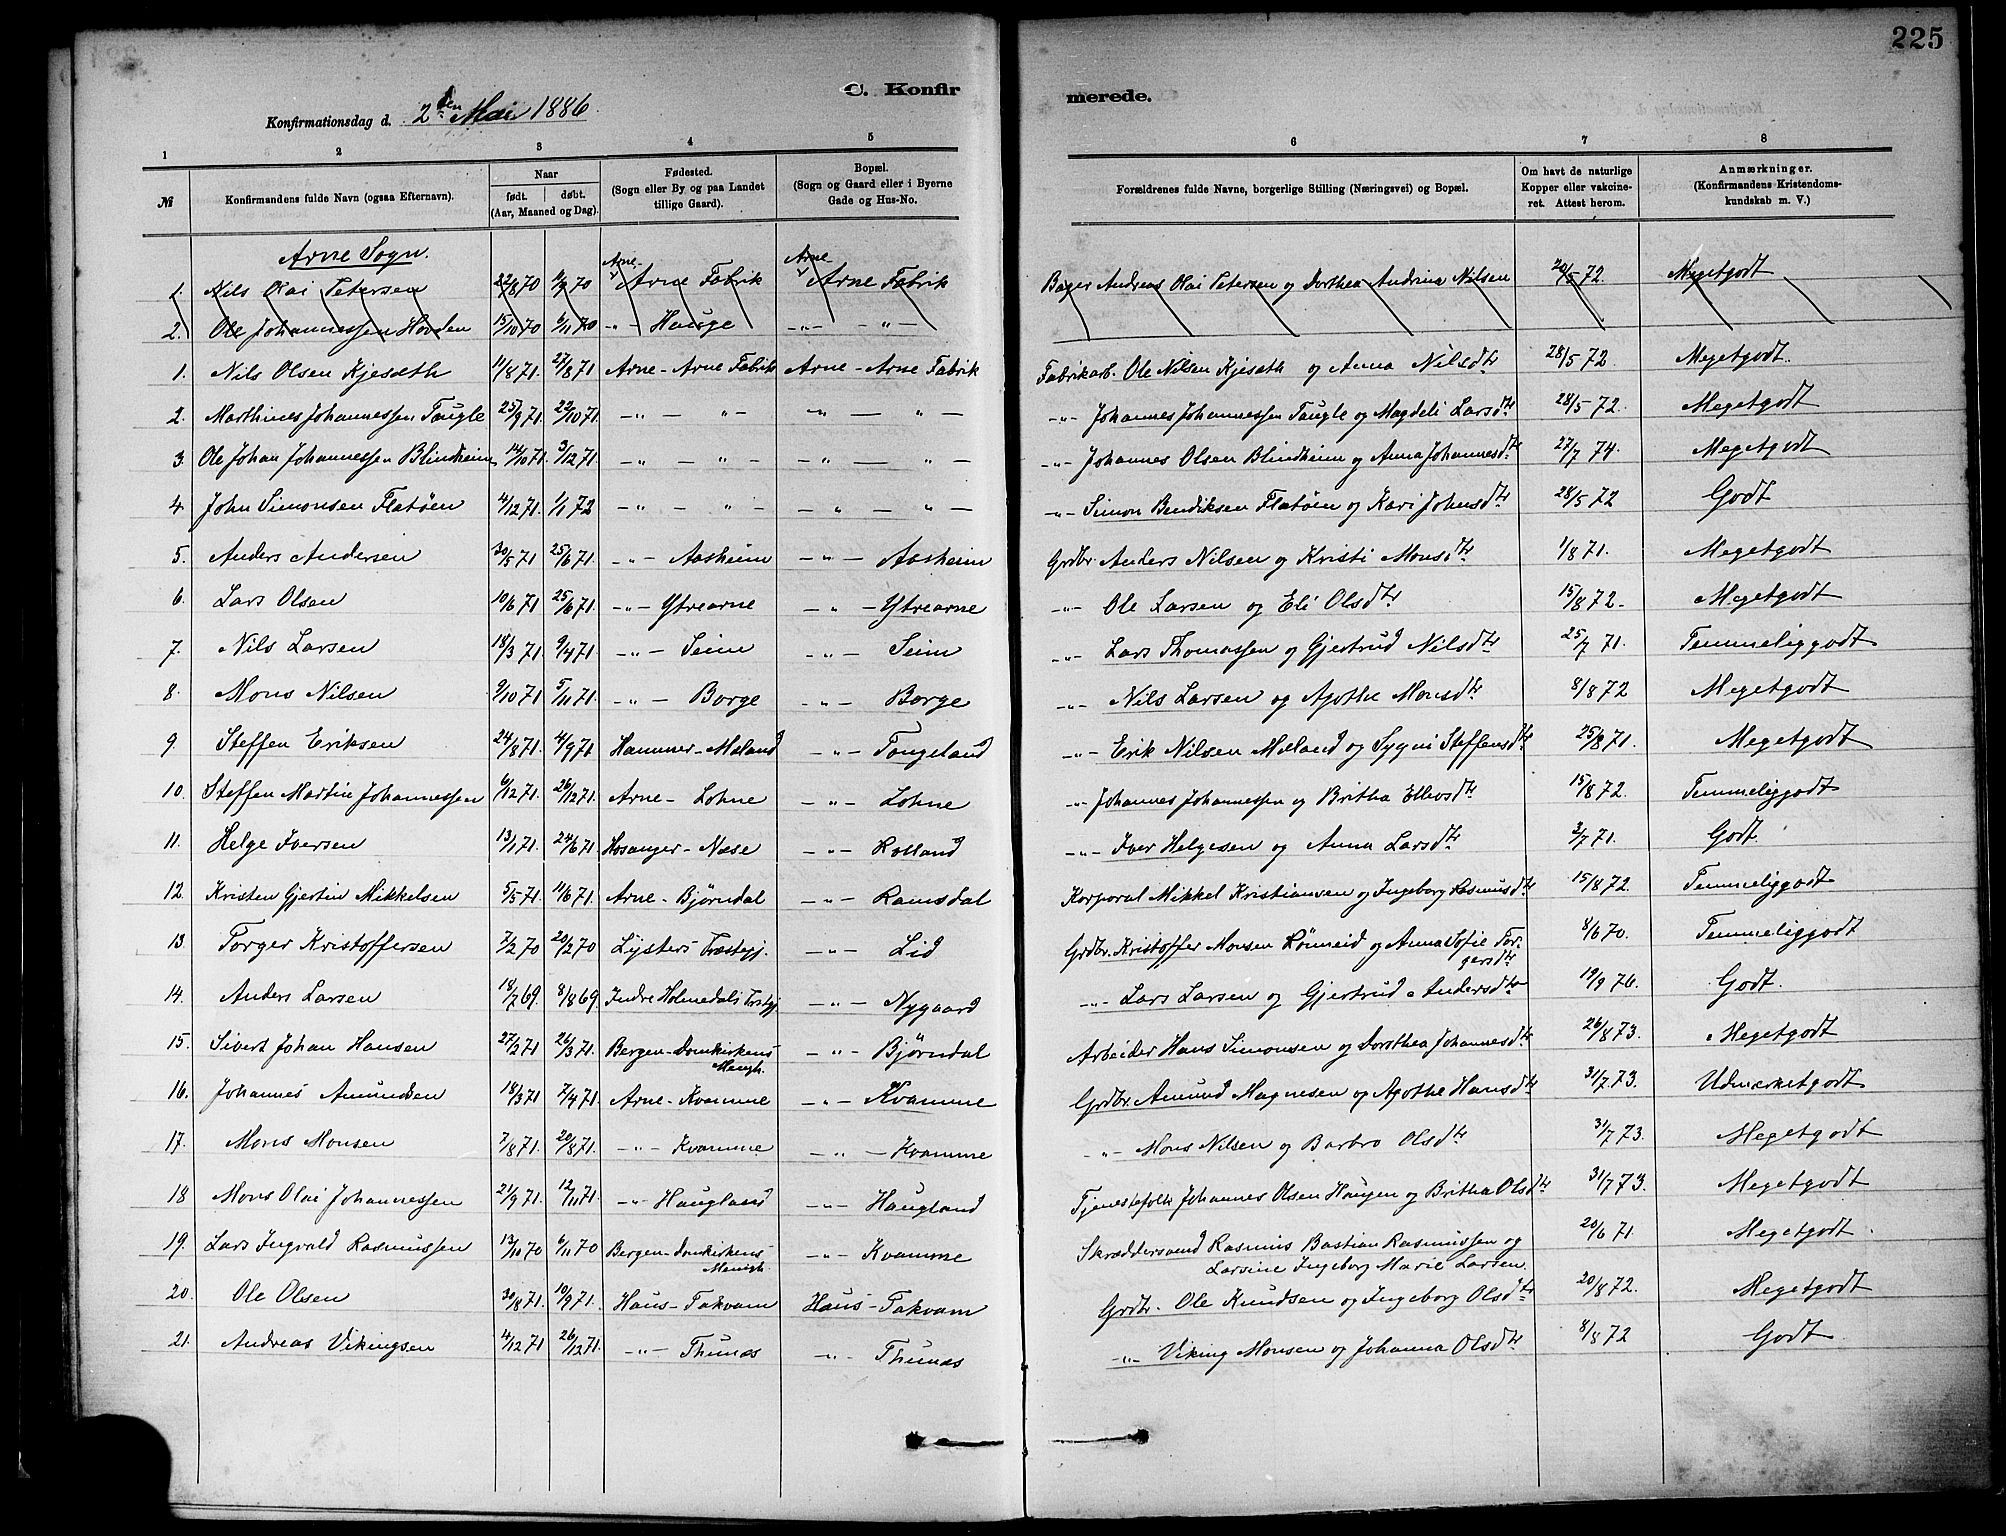 225
C. Konfirmerede.
Konfirmationsdag d. 2den Mai 1886.
1 2 3 4 5 6 7 8
№ | Konfirmandens fulde Navn (ogsaa Efternavn). | Naar født. døbt. (Aar, Maaned og Dag). | Fødested. (Sogn eller By og paa Landet tillige Gaard). | Bopæl. (Sogn og Gaard eller i Byerne Gade og Hus-No. | Forældrenes fulde Navne, borgerlige Stilling (Næringsvei) og Bopæl. | Om havt de naturlige Kopper eller vakcineret. Attest herom. | Anmærkninger. (Konfirmandens Kristendomskundskab m. V.)
Arne Sogn.
1. Nils Olai Petersen | 22/8 70 | 70 | Arne - Arne Fabrik | Arne - Arne Fabrik | Bager Andreas Olai Petersen og Dorthea Andrina Nilsen | 20/5 72. | Megetgodt
2. Ole Johannessen Hovden | 15/10 70 | 6/11 70 | -"- Hauge | -"- -"-
1. Nils Olsen Kjesæth | 11/8 71. | 27/8 71 | Arne - Arne Fabrik | Arne - Arne Fabrik | Fabrikarb. Ole Nilsen Kjesæth og Anna Nilsdtr | 28/5 72. | Megetgodt.
2. Marthines Johannessen Taugle | 25/9 71. | 22/10 71. | -"- -"- | -"- -"- | -"- Johannes Johannessen Taugle og Magdeli Larsdtr | 28/5 72. | Megetgodt
3. Ole Johan Johannessen Blindheim | 14/10 71. | 3/12 71. | -"- -"- | -"- -"- | -"- Johannes Olsen Blindheim og Anna Johannesdtr | 27/7 74. | Megetgodt
4. John Simonsen Flatöen | 4/12 71. | 1/1 72 | -"- -"- | -"- -"- | -"- Simon Bendiksen Flatöen og Kari Johnsdtr | 28/5 72 | Godt
5. Anders Andersen | 30/5 71 | 25/6 71. | -"- Aasheim | -"- Aasheim | Grdbr. Anders Nilsen og Kristi Monsdtr | 1/8 71. | Megetgodt
6. Lars Olsen | 10/6 71. | 25/6 71. | -"- Ytrearne | -"- Ytrearne | -"- Ole Larsen og Eli Olsdtr | 15/8 72. | Megetgodt
7. Nils Larsen | 18/3 71. | 9/4 71. | -"- Seim | -"- Seim | -"- Lars Thomassen og Gjertrud Nilsdtr | 25/7 71. | Temmeliggodt
8. Mons Nilsen | 9/10 71. | 5/11 71. | -"- Borge | -"- Borge | -"- Nils Larsen og Agothe Monsdtr | 8/8 72 | Megetgodt
9. Steffen Eriksen | 24/8 71. | 4/9 71 | Hammer - Mæland | -"- Tangeland | -"- Erik Nilsen Mæland og Sygni Steffensdtr | 25/8 71. | Megetgodt
10. Steffen Martin Johannessen | 6/12 71. | 26/12 71. | Arne - Lohne | -"- Lohne | -"- Johannes Johannessen og Britha Ellevsdtr | 15/8 72. | Temmeliggodt
11. Helge Iversen | 13/1 71. | 24/6 71. | Hosanger - Næse | -"- Rolland | -"- Iver Helgesen og Anna Larsdtr | 3/7 71. | Godt.
12. Kristen Gjertin Mikkelsen | 5/5 71. | 11/6 71. | Arne - Bjørndal | -"- Ramsdal | Korporal Mikkel Kristiansen og Ingeborg Rasmusdtr | 15/8 72. | Temmeliggodt
13. Torger Kristoffersen | 7/2 70 | 20/2 70 | Lysters Præstegj. | -"- Lid | Grdbr. Kristoffer Monsen Rönneid og Anna Sofie Torgersdtr | 8/6 70. | Temmeliggodt
14. Anders Larsen | 18/7 69. | 8/8 69. | Indre Holmedals Prstgj. | -"- Nygaard | -"- Lars Larsen og Gjertrud Andersdtr | 19/9 76. | Godt.
15. Sivert Johan Hansen | 27/2 71 | 26/3 71. | Bergen - Domkirkens Menigh. | -"- Bjørndal | Arbeider Hans Simonsen og Dorthea Johannesdtr | 26/8 73. | Megetgodt
16. Johannes Amundsen | 18/3 71 | 7/4 71. | Arne - Kvamme | -"- Kvamme | Grdbr. Amund Magnesen og Agothe Hansdtr | 31/7 73. | Udmerketgodt
17. Mons Monsen | 7/8 71. | 20/8 71. | -"- Kvamme | -"- Kvamme | -"- Mons Nilsen og Barbro Olsdtr | 31/7 73. | Megetgodt
18 Mons Olai Johannessen | 21/9 71. | 12/11 71. | -"- Haugland | -"- Haugland | Tjenestefolk Johannes Olsen Haugen og Britha Olsdtr | 31/7 73. | Megetgodt
19. Lars Ingvald Rasmussen | 13/10 70 | 6/11 70 | Bergen - Domkirkens Menigh. | -"- Kvamme | Skræddersvend Rasmus Bastian Rasmussen og Larsine Ingeborg Marie Larsen. | 20/6 71. | Megetgodt.
20. Ole Olsen | 30/8 71. | 10/9 71. | Haus - Takvam | Haus - Takvam | Grdbr. Ole Knudsen og Ingeborg Olsdtr | 20/8 72. | Megetgodt
21. Andreas Vikingsen | 4/12 71 | 26/12 71. | -"- Thunæs | -"- Thunæs | -"- Viking Monsen og Johanna Olsdtr | 8/8 72 | Godt